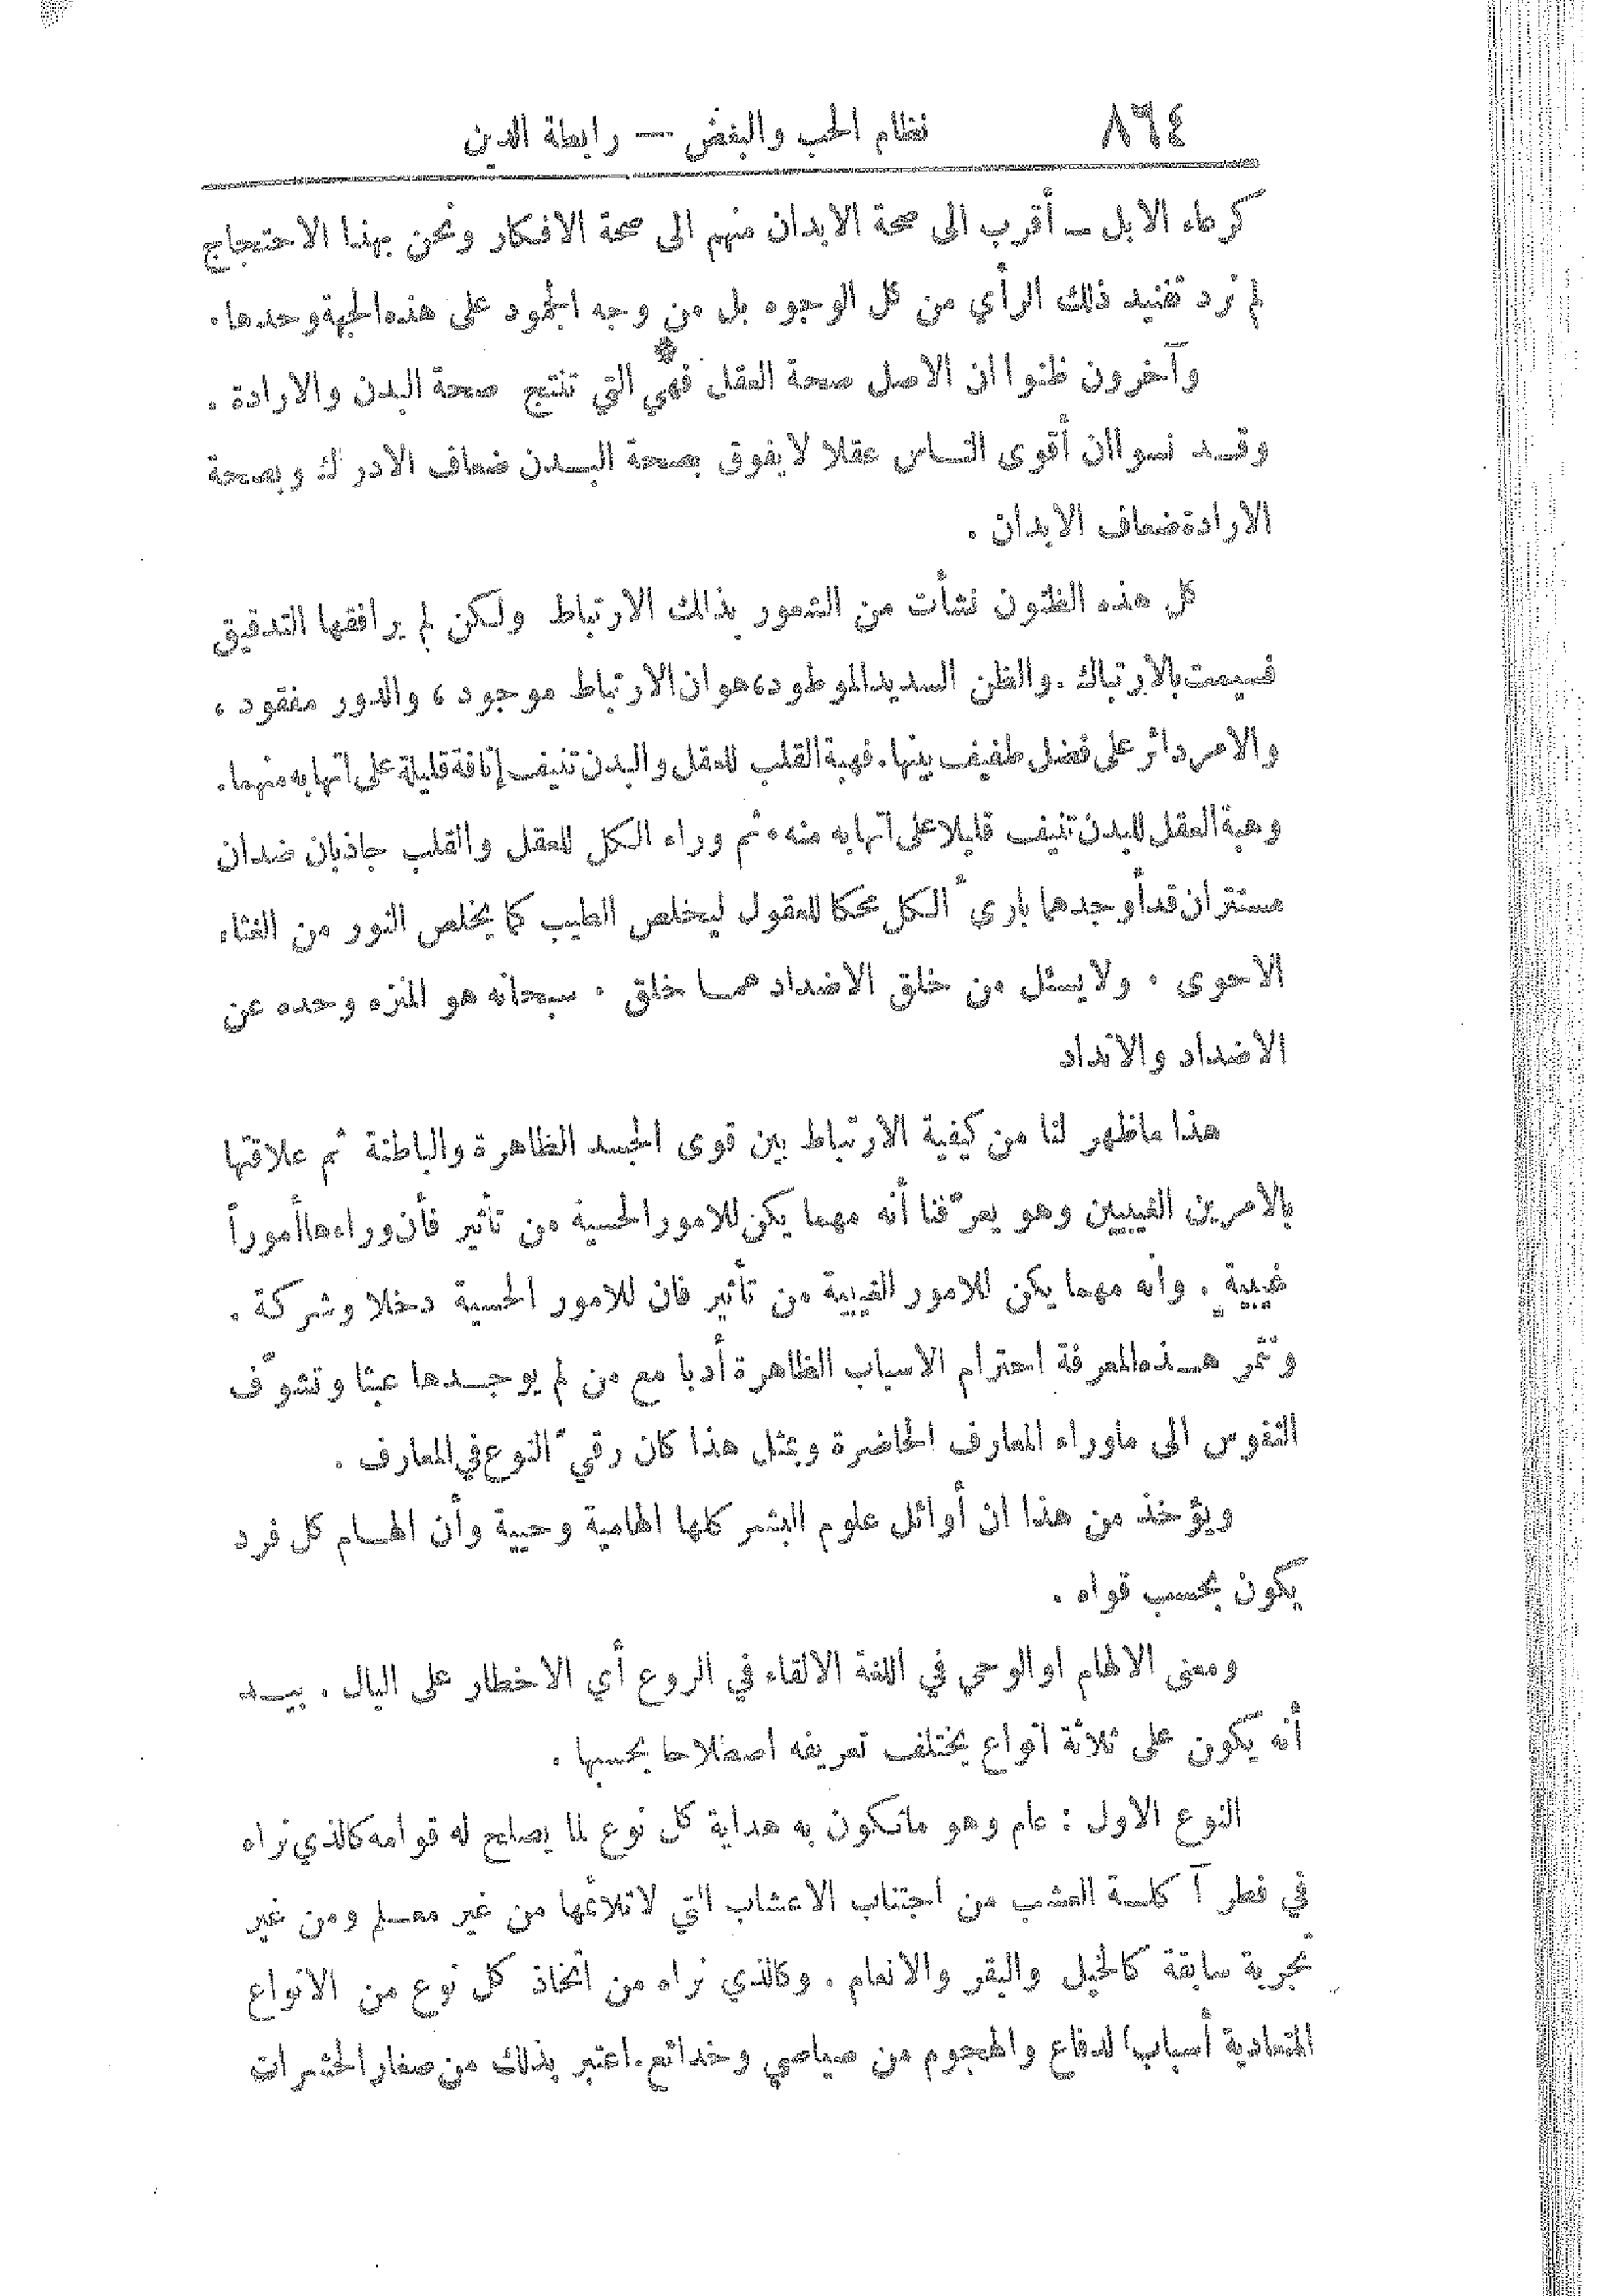 ٨٦٤ نظام الحب والبغض — رابطة الدين
كرعاء الابل — أقرب الى صحة الابدان منهم الى صحة الافكار ونحن بهذا الاحتجاج
لم نرد تفنيد ذلك الرأي من كل الوجوه بل من وجه الجمود على هذه الجهة وحدها .
وآخرون ظنوا ان الاصل صحة العقل فهي التي تنتج صحة البدن والارادة .
وقد نسوا ان أقوى الناس عقلا لا يفوق بصحة البدن ضعاف الادراك وبصحة
الارادة ضعاف الابدان .
كل هذه الظنون نشأت من الشعور بذلك الارتباط ولكن لم يرافقها التدقيق
فسيمت بالارتباك . والظن السديد الموطود، هو ان الارتباط موجود ، والدور مفقود ،
والامر دائر على فضل طفيف بينها . فهبة القلب للعقل والبدن تنيف إنافة قليلة على اتهابه منهما .
وهبة العقل للبدن تنيف قليلا على اتهابه منه . ثم وراء الكل للعقل والقلب جاذبان ضدان
مستتران قد أوجدهما بارئ الكل محكا للعقول ليخلص الطيب كما يخلص النور من الغثاء
الاحوى . ولا يسئل من خلق الاضداد عما خلق . سبحانه هو المنزه وحده عن
الاضداد والانداد
هذا ما ظهر لنا من كيفية الارتباط بين قوى الجسد الظاهرة والباطنة ثم علاقتها
بالامرين الغيبيين وهو يعرّفنا أنه مهما يكن للامور الحسية من تأثير فأن وراءها أموراً
غيبية . وانه مهما يكن للامور الغيبية من تأثير فان للامور الحسية دخلا وشركة .
وتثمر هذه المعرفة احترام الاسباب الظاهرة أدبا مع من لم يوجدها عبثا وتشوّف
النفوس الى ماوراء المعارف الحاضرة وبمثل هذا كان رقيّ النوع في المعارف .
ويؤخذ من هذا ان أوائل علوم البشر كلها الهامية وحيية وأن الهام كل فرد
يكون بحسب قواه .
ومعنى الالهام او الوحي في اللغة الالقاء في الروع أي الاخطار على البال . بيد
أنه يكون على ثلاثة انواع يختلف تعريفه اصطلاحا بحسبها .
النوع الاول : عام وهو ماتكون به هداية كل نوع لما يصلح له قوامه كالذي نراه
في فطر آكلة العشب من اجتناب الاعشاب التي لاتلائمها من غير معلم ومن غير
تجربة سابقة كالخيل والبقر والانعام . وكالذي نراه من اتخاذ كل نوع من الانواع
المتعادية أسبابا للدفاع والهجوم من صياصي وخدائع . اعتبر بذلك من صغار الحشرات